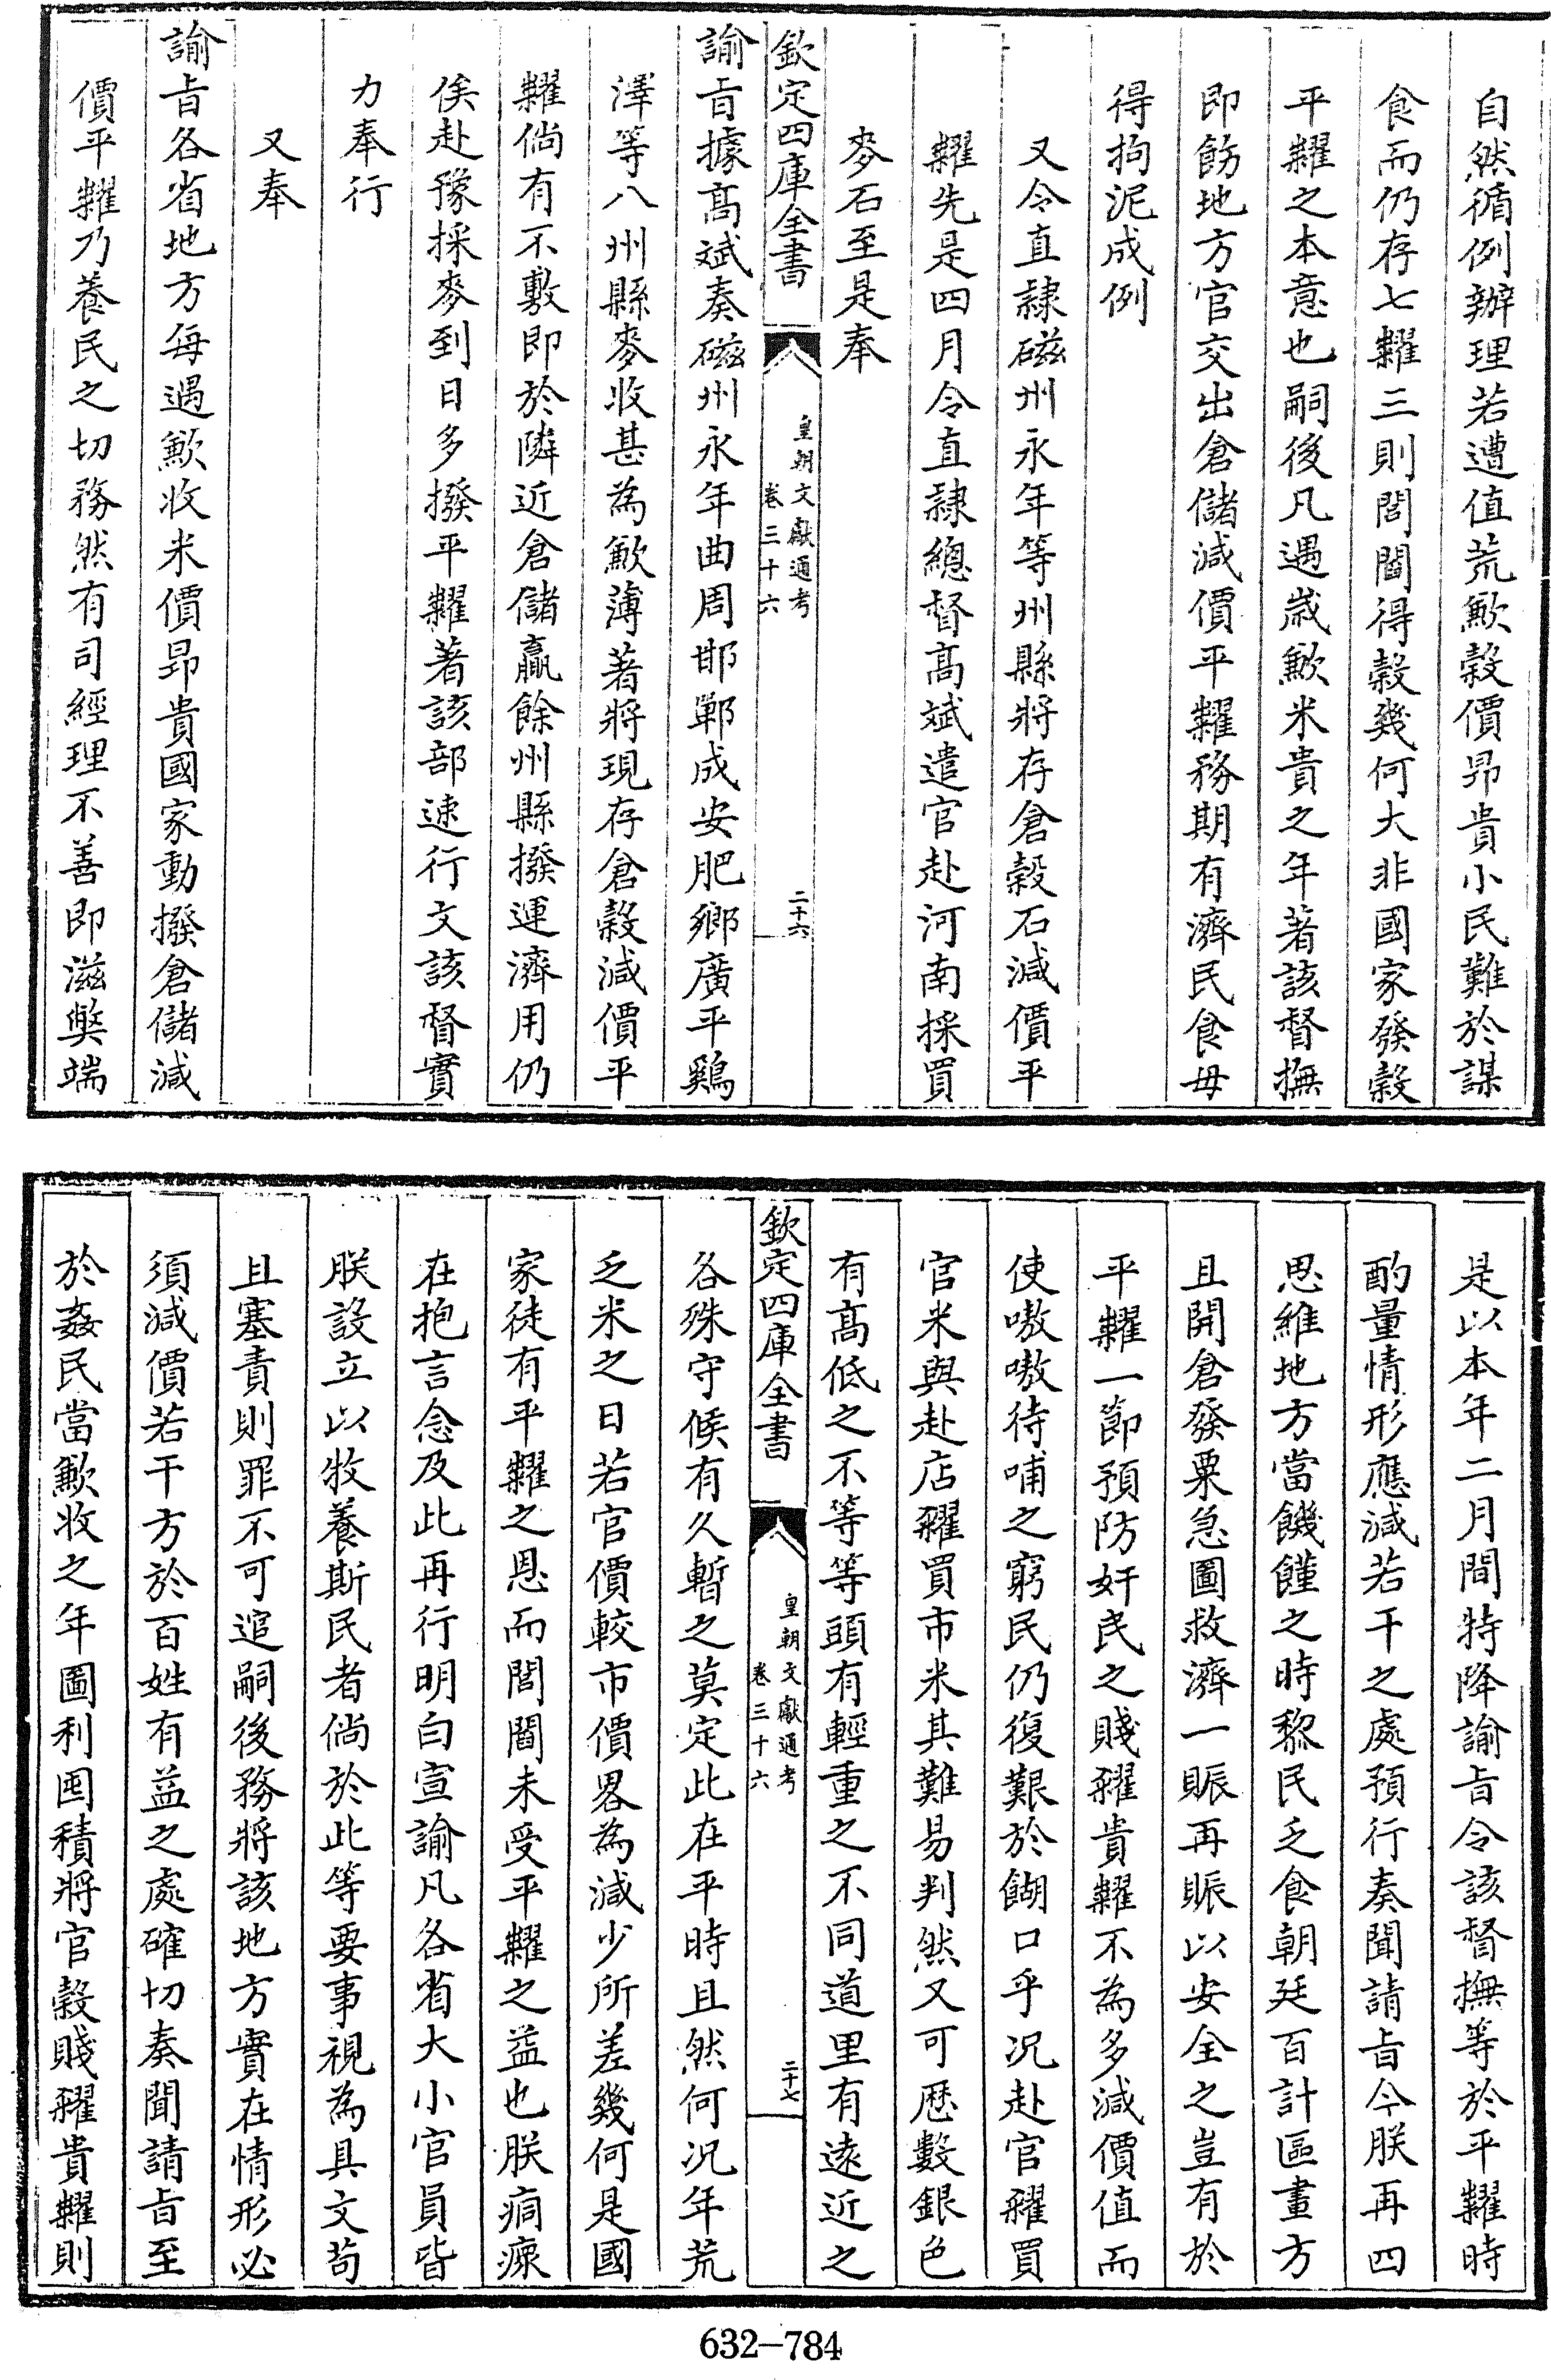 自然循例辦理若遭值荒歉穀價昂貴小民難於謀
食而仍存七糶三則閭閻得穀幾何大非國家發穀
平糶之本意也嗣後凡遇歲歉米貴之年著該督撫
即飭地方官交出倉儲減價平糶務期有濟民食毋
得拘泥成例
又令直隸磁州永年等州縣將存倉穀石減價平
糶先是四月令直隸總督高斌遣官赴河南採買
麥石至是奉
欽定四庫全書
皇朝文獻通考
卷三十六
二十六
諭旨據高斌奏磁州永年曲周邯鄲成安肥鄉廣平鷄
澤等八州縣麥收甚為歉薄著將現存倉穀減價平
糶倘有不敷即於隣近倉儲贏餘州縣撥運濟用仍
俟赴豫採麥到日多撥平糶著該部速行文該督實
力奉行
又奉
諭旨各省地方每遇歉收米價昂貴國家動撥倉儲減
價平糶乃養民之切務然有司經理不善即滋獘端
是以本年二月間特降諭旨令該督撫等於平糶時
酌量情形應減若干之處預行奏聞請旨今朕再四
思維地方當饑饉之時黎民乏食朝廷百計區畫方
且開倉發粟急圖救濟一賑再賑以安全之豈有於
平糶一節預防奸民之賤糴貴糶不為多減價值而
使嗷嗷待哺之窮民仍復艱於餬口乎况赴官糴買
官米與赴店糴買市米其難易判然又可歷數銀色
有高低之不等等頭有輕重之不同道里有遠近之
欽定四庫全書
皇朝文獻通考
卷三十六
二十七
各殊守候有久暫之莫定此在平時且然何况年荒
乏米之日若官價較市價畧為減少所差幾何是國
家徒有平糶之恩而閭閻未受平糶之益也朕痌瘝
在抱言念及此再行明白宣諭凡各省大小官員皆
朕設立以牧養斯民者倘於此等要事視為具文苟
且塞責則罪不可逭嗣後務將該地方實在情形必
須減價若干方於百姓有益之處確切奏聞請旨至
於姦民當歉收之年圖利囤積將官穀賤糴貴糶則
632-784